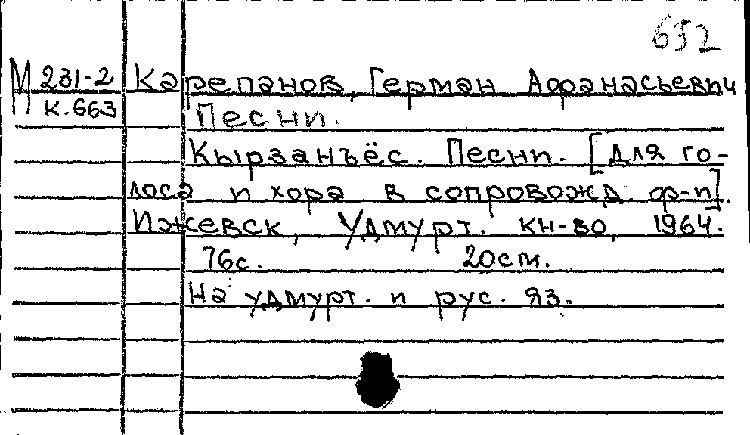 652
М 231-2 Карепанов, Герман Афанасьевич
К.663 Песни.
Кырзанъёс. Песни. [Для го-
лоса и хора в сопровожд. ф-п].
Ижевск, Удмурт. кн-во, 1964.
76с. 20см.
На удмурт. и рус. яз.